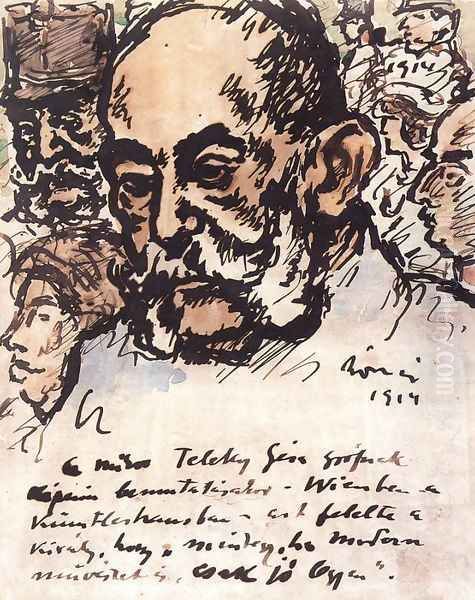 1914
Rónai
1914
a mikor Teleky Géza grófnak
képeim bemutatásakor - Wienben a
künstlerhausban - azt felelte a
király, hogy „mindegy, ha modern
művészet is, csak jó legyen".